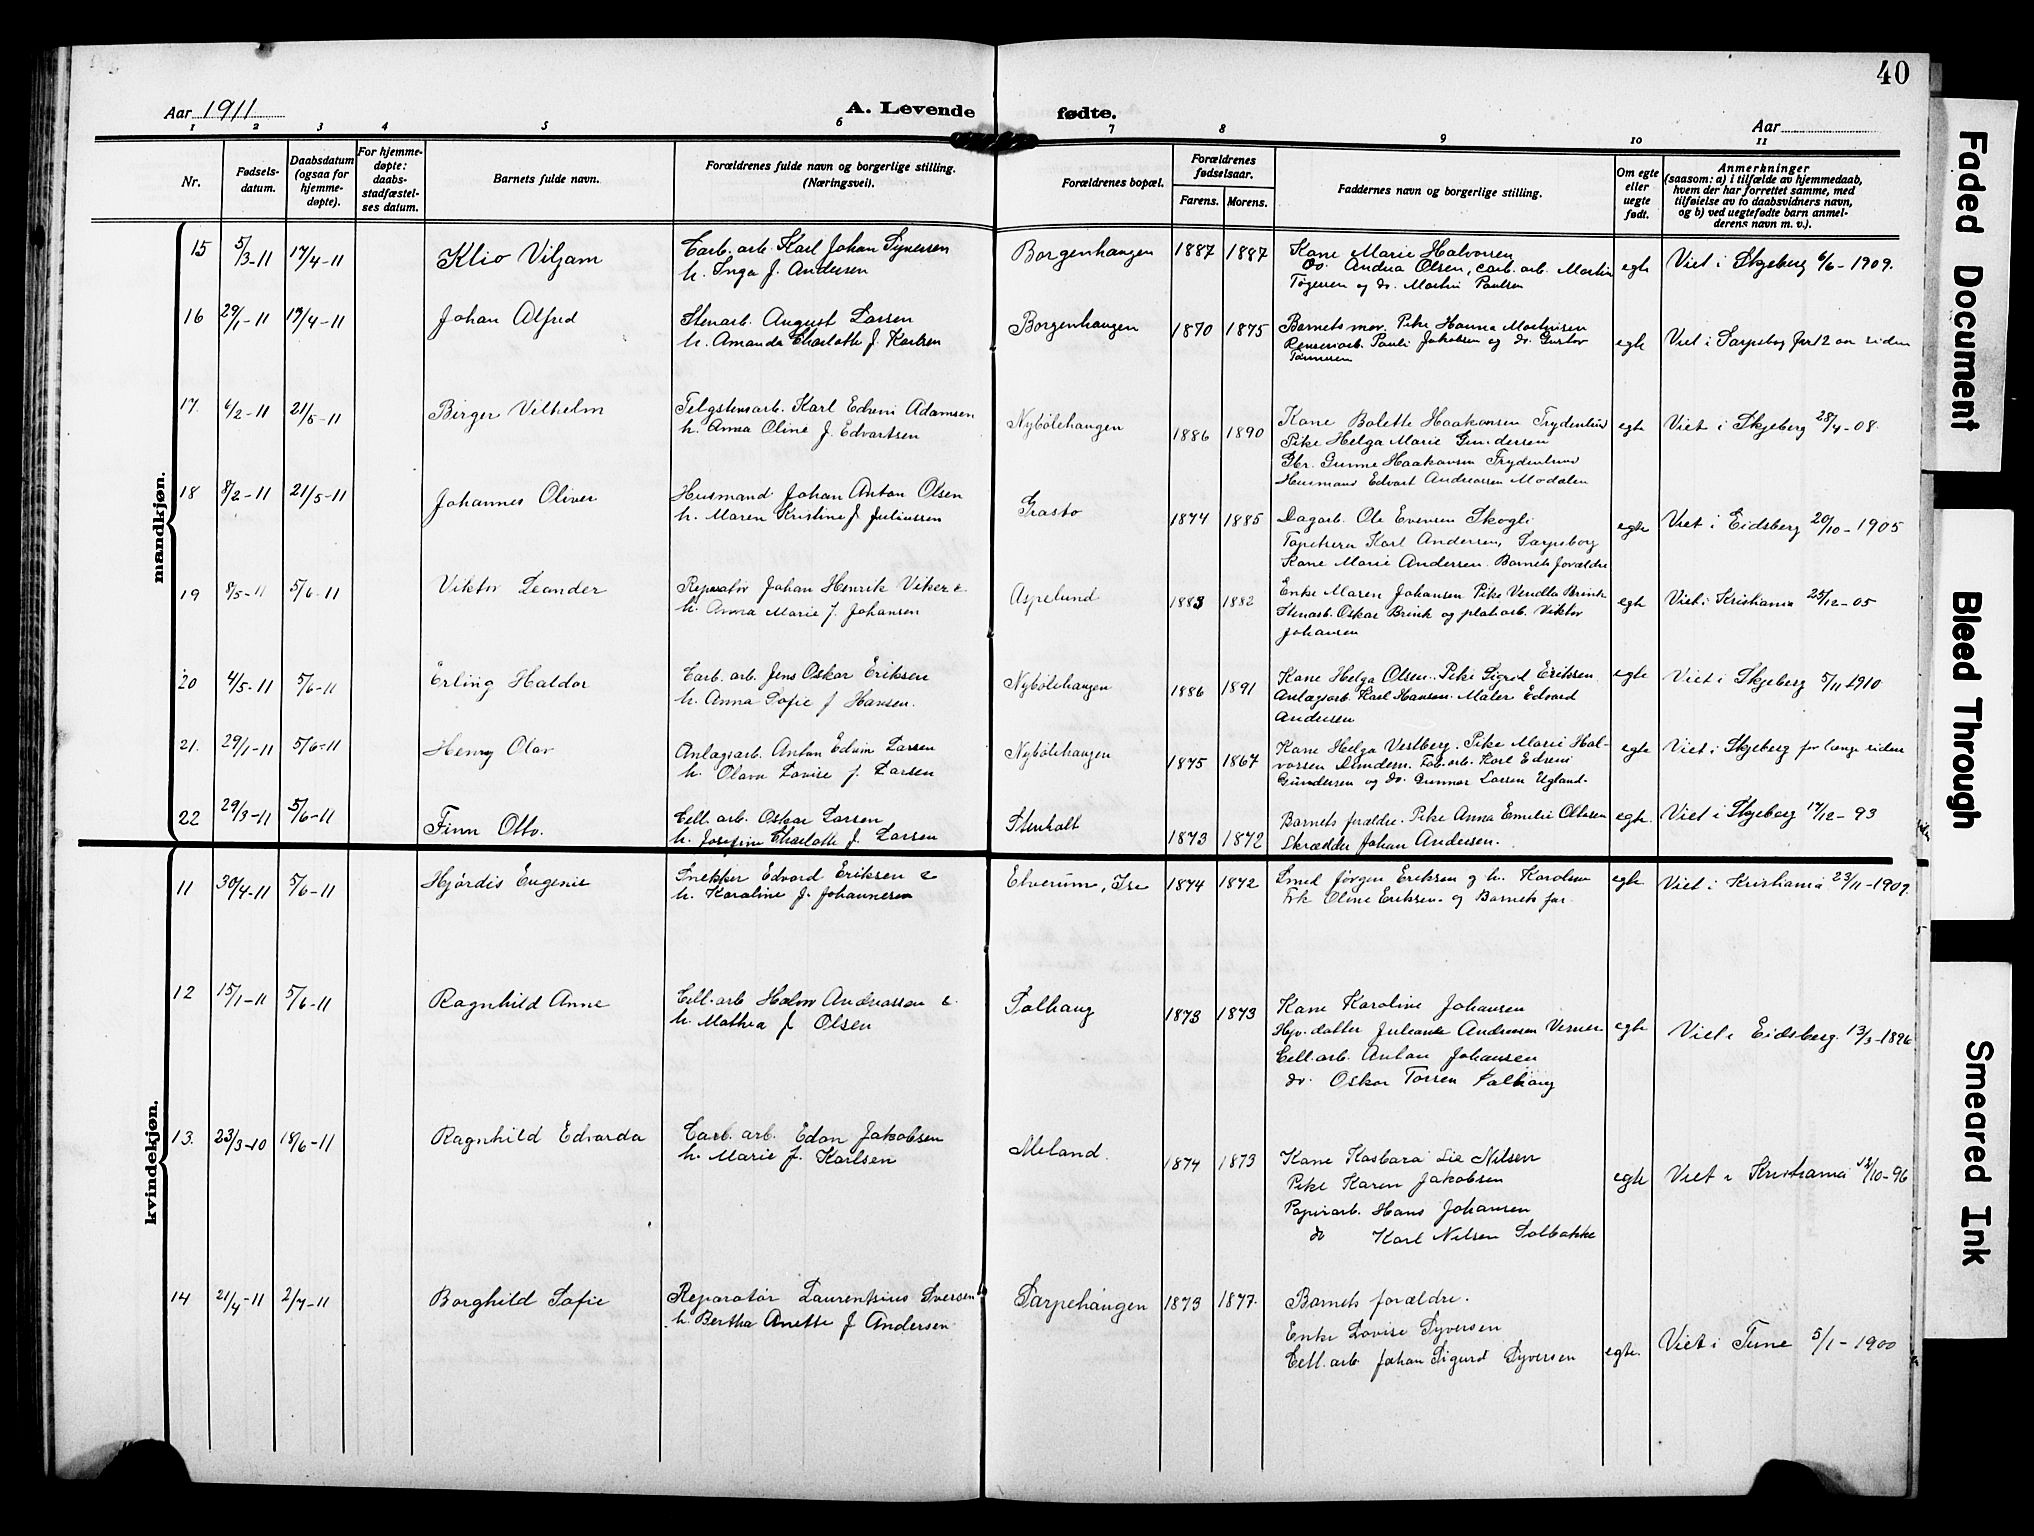 40
Aar 1911
A. Levende fødte.
Aar
1 2 3 4 5 6 7 8 9 10 11
Nr.
Fødsels-
datum.
Daabsdatum
(ogsaa for
hjemme-
døpte).
For hjemme-
døpte:
daabs-
stadfæstel-
ses datum.
Barnets fulde navn.
Forældrenes fulde navn og borgerlige stilling.
(Næringsvei).
Forældrenes bopæl.
Forældrenes
fødselsaar.
Farens. Morens.
Faddernes navn og borgerlige stilling.
Om egte
eller
uegte
født.
Anmerkninger
(saasom: a) i tilfælde av hjemmedaab,
hvem der har forrettet samme, med
tilføielse av to daabsvidners navn,
og b) ved uegtefødte barn anmel-
derens navn m. v.).
mandkjøn.
15 5/3-11 17/4-11 Klio Viljam
Carb. arb. Karl Johan Syversen
h. Inga f. Andersen
Borgenhaugen 1887 1887
Kone Marie Halvorsen
Do. Andrea Olsen, carb. arb. Martin
og do. Martin Paulsen
egte Viet i Skjeberg 6/6-1909.
16 29/1-11 17/4-11 Johan Alfred
Stenarb. August Larsen
h. Amanda Charlotte f. Karlsen
Borgenhaugen 1870 1875
Barnets mor. Pike Hanna Martinsen
Renseriarb. Pauli Jakobsen og do. Gustav
egte Viet i Sarpsborg for 12 aar siden
17. 6/2-11 21/5-11 Birger Vilhelm
Telgstensarb. Karl Edvin Adamsen
h. Anna Oline f. Edvartsen
Nybølehaugen 1886 1890
Kone Bolette Haakonsen Frydenlund
Pike Helga Marie Gundersen
Gbr. Gunne Haakonsen Frydenlund
Husmand Edvart Andreassen Modalen
egte Viet i Skjeberg 28/4-08.
18 8/2-11 21/5-11 Johannes Oliver
Husmand Johan Anton Olsen
h. Maren Kristine f. Juliussen
Grastø 1874 1885
Dagarb. Ole Evensen Skogli
Tapetserer Karl Andersen, Sarpsborg
Kone Marie Andersen. Barnets forældre
egte Viet i Eidsberg 20/10-1905
19 8/5-11 5/6-11 Viktor Leander
Reparatør Johan Henrik Viker &
h. Anna Marie f. Johansen
Aspelund 1883 1882
Enke Maren Johansen Pike Vendla Brink
Stenarb. Oskar Brink og platarb. Viktor
Johansen
egte Viet i Kristiania 25/12-05
20 4/5-11 5/6-11 Erling Haldor
Carb. arb. Jens Oskar Eriksen
h. Anna Sofie f Hansen.
Nybølehaugen 1886 1891
Kone Helga Olsen. Pike Sigrid Eriksen.
Anlagsarb. Karl Hansen. Maler Edvard
Andersen
egte Viet i Skjeberg 5/11 1910
21. 29/1-11 5/6-11 Henry Olav
Anlagsarb. Anton Edvin Larsen
h. Olava Lovise f. Larsen
Nybølehaugen 1875 1867
Kone Helga Vestberg. Pike Marie Hal-
vorsen Lundem. Fab. arb. Karl Edvin
Gundersen og do. Gunnar Larsen Ugland.
egte Viet i Skjeberg for længe siden
22 29/3-11 5/6-11 Finn Otto.
Cell. arb. Oskar Larsen
h. Josefine Charlotte f. Larsen
Stenholt 1873 1872
Barnets forældre. Pike Anna Emilie Ottesen
Skrædder Johan Andersen.
egte Viet i Skjeberg 17/12-93
kvindekjøn.
11 30/4-11 5/6-11 Hjørdis Eugenie
Snekker Edvard Eriksen &
h. Karoline f. Johannesen
Elverum, Ise 1874 1872
Smed Jørgen Eriksen og h. Karoline
Frk Oline Eriksen. og Barnets far.
egte Viet i Kristiania 23/11-1907.
12 15/1-11 5/6-11 Ragnhild Anne
Cell. arb Halvor Andreassen &
h. Mathea f Olsen
Solhaug 1873 1873
Kone Karoline Johansen
Hjv. datter Juliane Andreasen Verner
Cell. arb. Anton Johansen
do. Oskar Torsen Solhaug
egte Viet i Eidsberg 13/3-1896
13. 23/3-10 18/6-11 Ragnhild Edvarda
Carb. arb. Edon Jakobsen
h. Marie f. Karlsen
Meland. 1874 1873
Kone Kasbara Lie Nilsen
Pike Karen Jakobsen
Papirarb. Hans Johansen
do Karl Nilsen Solbakke
egte Viet i Kristiania 12/10-96
14 21/4-11 2/7-11 Borghild Sofie
Reparatør Laurentsius Iversen
h. Bertha Anette f Andersen
Sarpehaugen 1873 1877.
Barnets forældre.
Enke Lovise Syversen
Cell. arb Johan Sigurd Syversen
egte. Viet i Tune 5/1-1900
Faded Document
Bleed Through
Smeared Ink